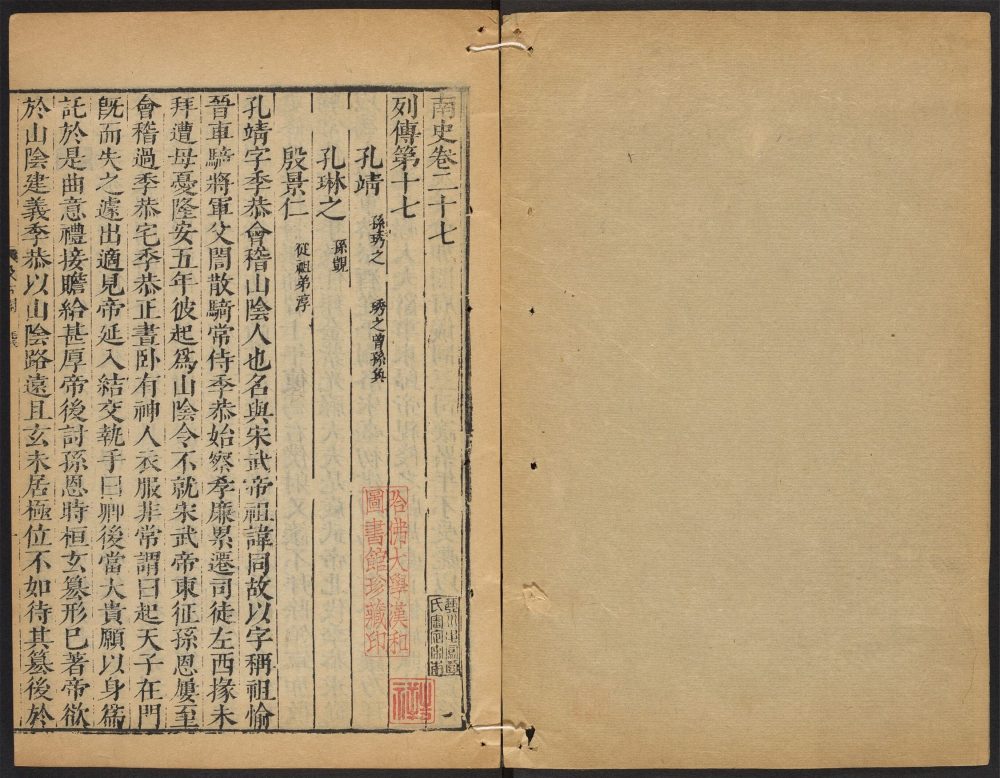 南史卷二十七
列傳第十七
孔靖 孫琇之 琇之曾孫奐
孔琳之 孫覬
殷景仁 從祖弟淳
孔靖字季恭會稽山陰人也名與宋武帝祖諱同故以字稱祖愉
晉車騎將軍父誾散騎常侍季恭始察孝廉累遷司徒左西掾未
拜遭母憂隆安五年彼起爲山陰令不就宋武帝東征孫恩屢至
會稽過季恭宅季恭正晝卧有神人衣服非常謂曰起天子在門
旣而失之遽出適見帝延入結交執手曰卿後當大貴願以身爲
託於是曲意禮接贍給甚厚帝後討孫恩時桓玄篡形已著帝欲
於山陰建義季恭以山陰路遠且玄未居極位不如待其篡後於
哈佛大學漢和
圖書館珍藏印
一